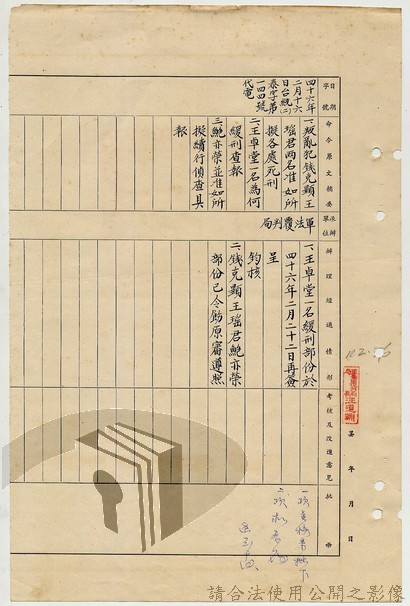 日期
字號
四十六年
二月十六
日台統(二)
泰字第
一四四號
代電
命令原文摘要
一、叛亂犯錢克顯王
瑶君两名准如所
擬各處死刑
二、王卓堂一名為何
緩刑查報
三、鮑亦榮並准如所
擬續行偵查具
報
承辦
單位
軍法覆判局
辦理經過情形
一、王卓堂一名緩刑部份於
四十六年二月二十二日再簽
呈
鈞核
二、錢克顯王瑶君鮑亦榮
部份已令飭原審遵照
考核及改進意見
批示
年月日
請合法使用公開之影像